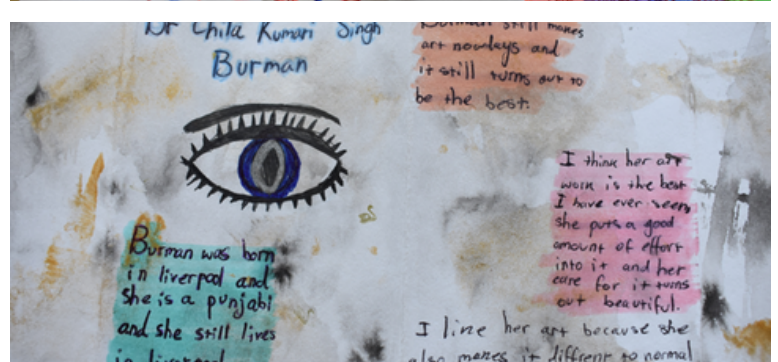 Dr Chila Kumari Singh
Burman
Burman still makes
art nowdays and
it still turns out to
be the best.
I think her art
work is the best
I have ever seen,
she puts a good
amount of effort
into it and her
care for it turns
out beautiful.
Burman was born
in liverpool and
she is a punjabi
and she still lives
in liverpool
I like her art because she
also makes it diffrent to normal